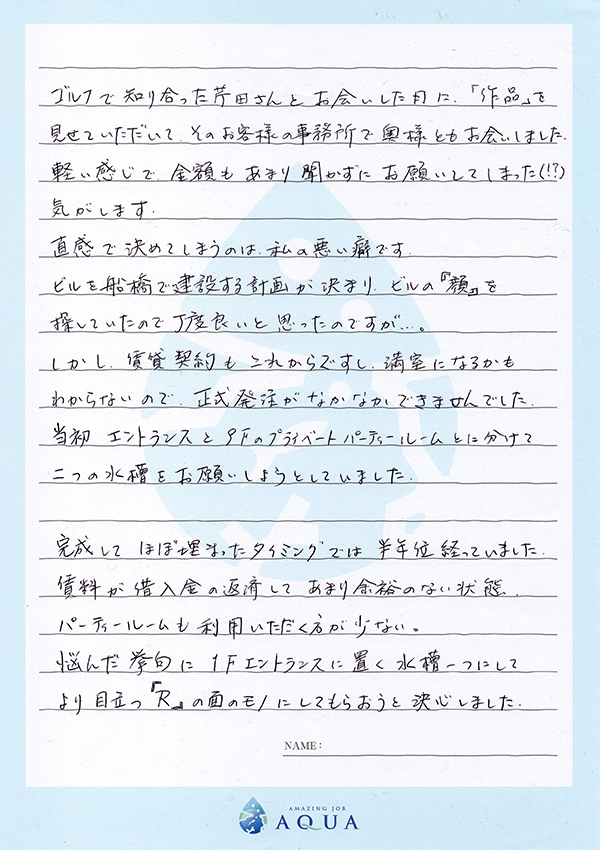 ゴルフで知り合った芹田さんとお会いした月に、「作品」を
見せていただいて、そのお客様の事務所で奥様ともお会いしました。
軽い感じで、金額もあまり聞かずにお願いしてしまった(!?)
気がします。
直感で決めてしまうのは、私の悪い癖です。
ビルを船橋で建設する計画が決まり、ビルの『顔』を
探していたので丁度良いと思ったのですが…。
しかし、賃貸契約もこれからですし、満室になるかも
わからないので、正式発注がなかなかできませんでした。
当初 エントランスと9Fのプライベートパーティールームとに分けて
二つの水槽をお願いしようとしていました。
完成して ほぼ埋まったタイミングでは 半年位経っていました。
賃料が借入金の返済して あまり余裕のない状態、
パーティールームも利用いただく方が少ない。
悩んだ挙句に 1Fエントランスに置く水槽一つにして
より目立つ『R』の面のモノにしてもらおうと決心しました。
NAME:
AMAZING JOB
AQUA